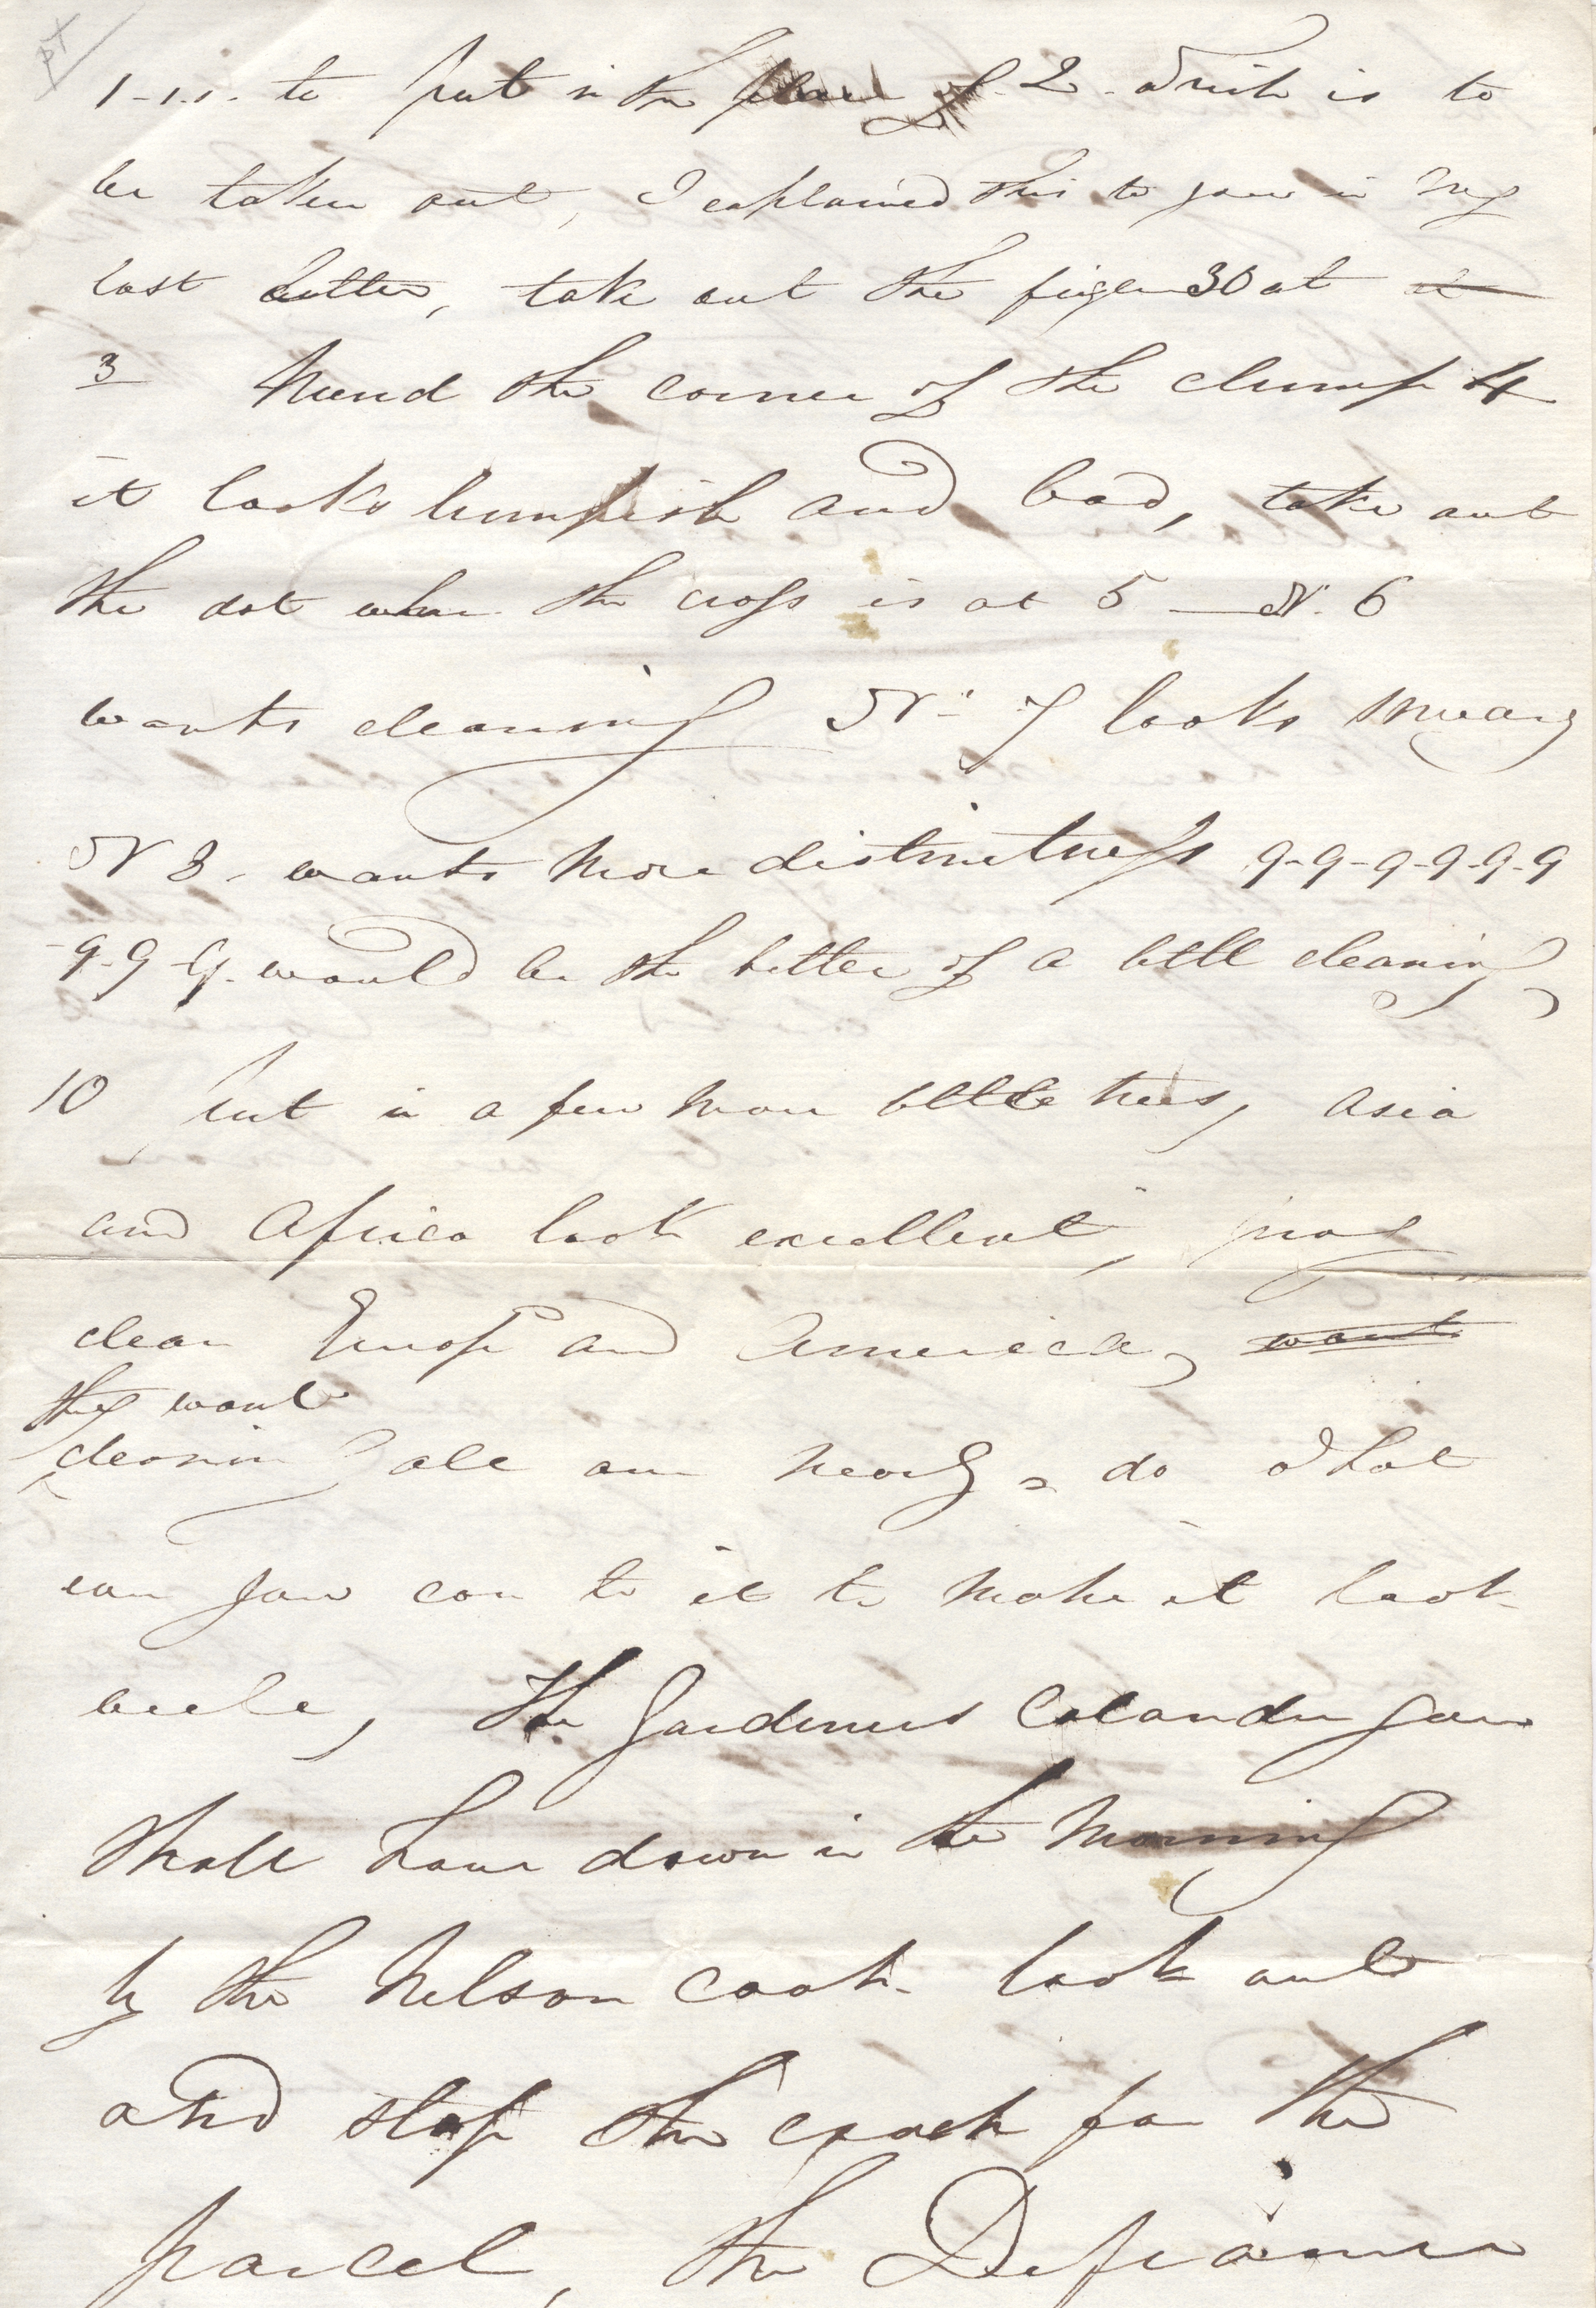 1-1.1. to put in the place of 2. which is to
be taken out, I explained this to you in my
last letter, take out the figer 30 at
3 Mend the corner of the clump 4
it looks lumpish and bad, take out
the dot whar the cross is at 5 — N. 6
wants cleaning N. 7 looks smeary
N 8. wants more distinctness 9-9-9-9-9-9
-9-9-9. would be the better of a littl cleaning
10 put in a few more little trees, asia
and Africa look excellent, pray
clean Europ and America, want
they want
cleanin all over nearly, do what
ever you can to it to make it look
well, The Gardeners Calander you
shall have down in the Morning
by the Nelson coach. look out
and stop the coach for the
parcel, the Defiance